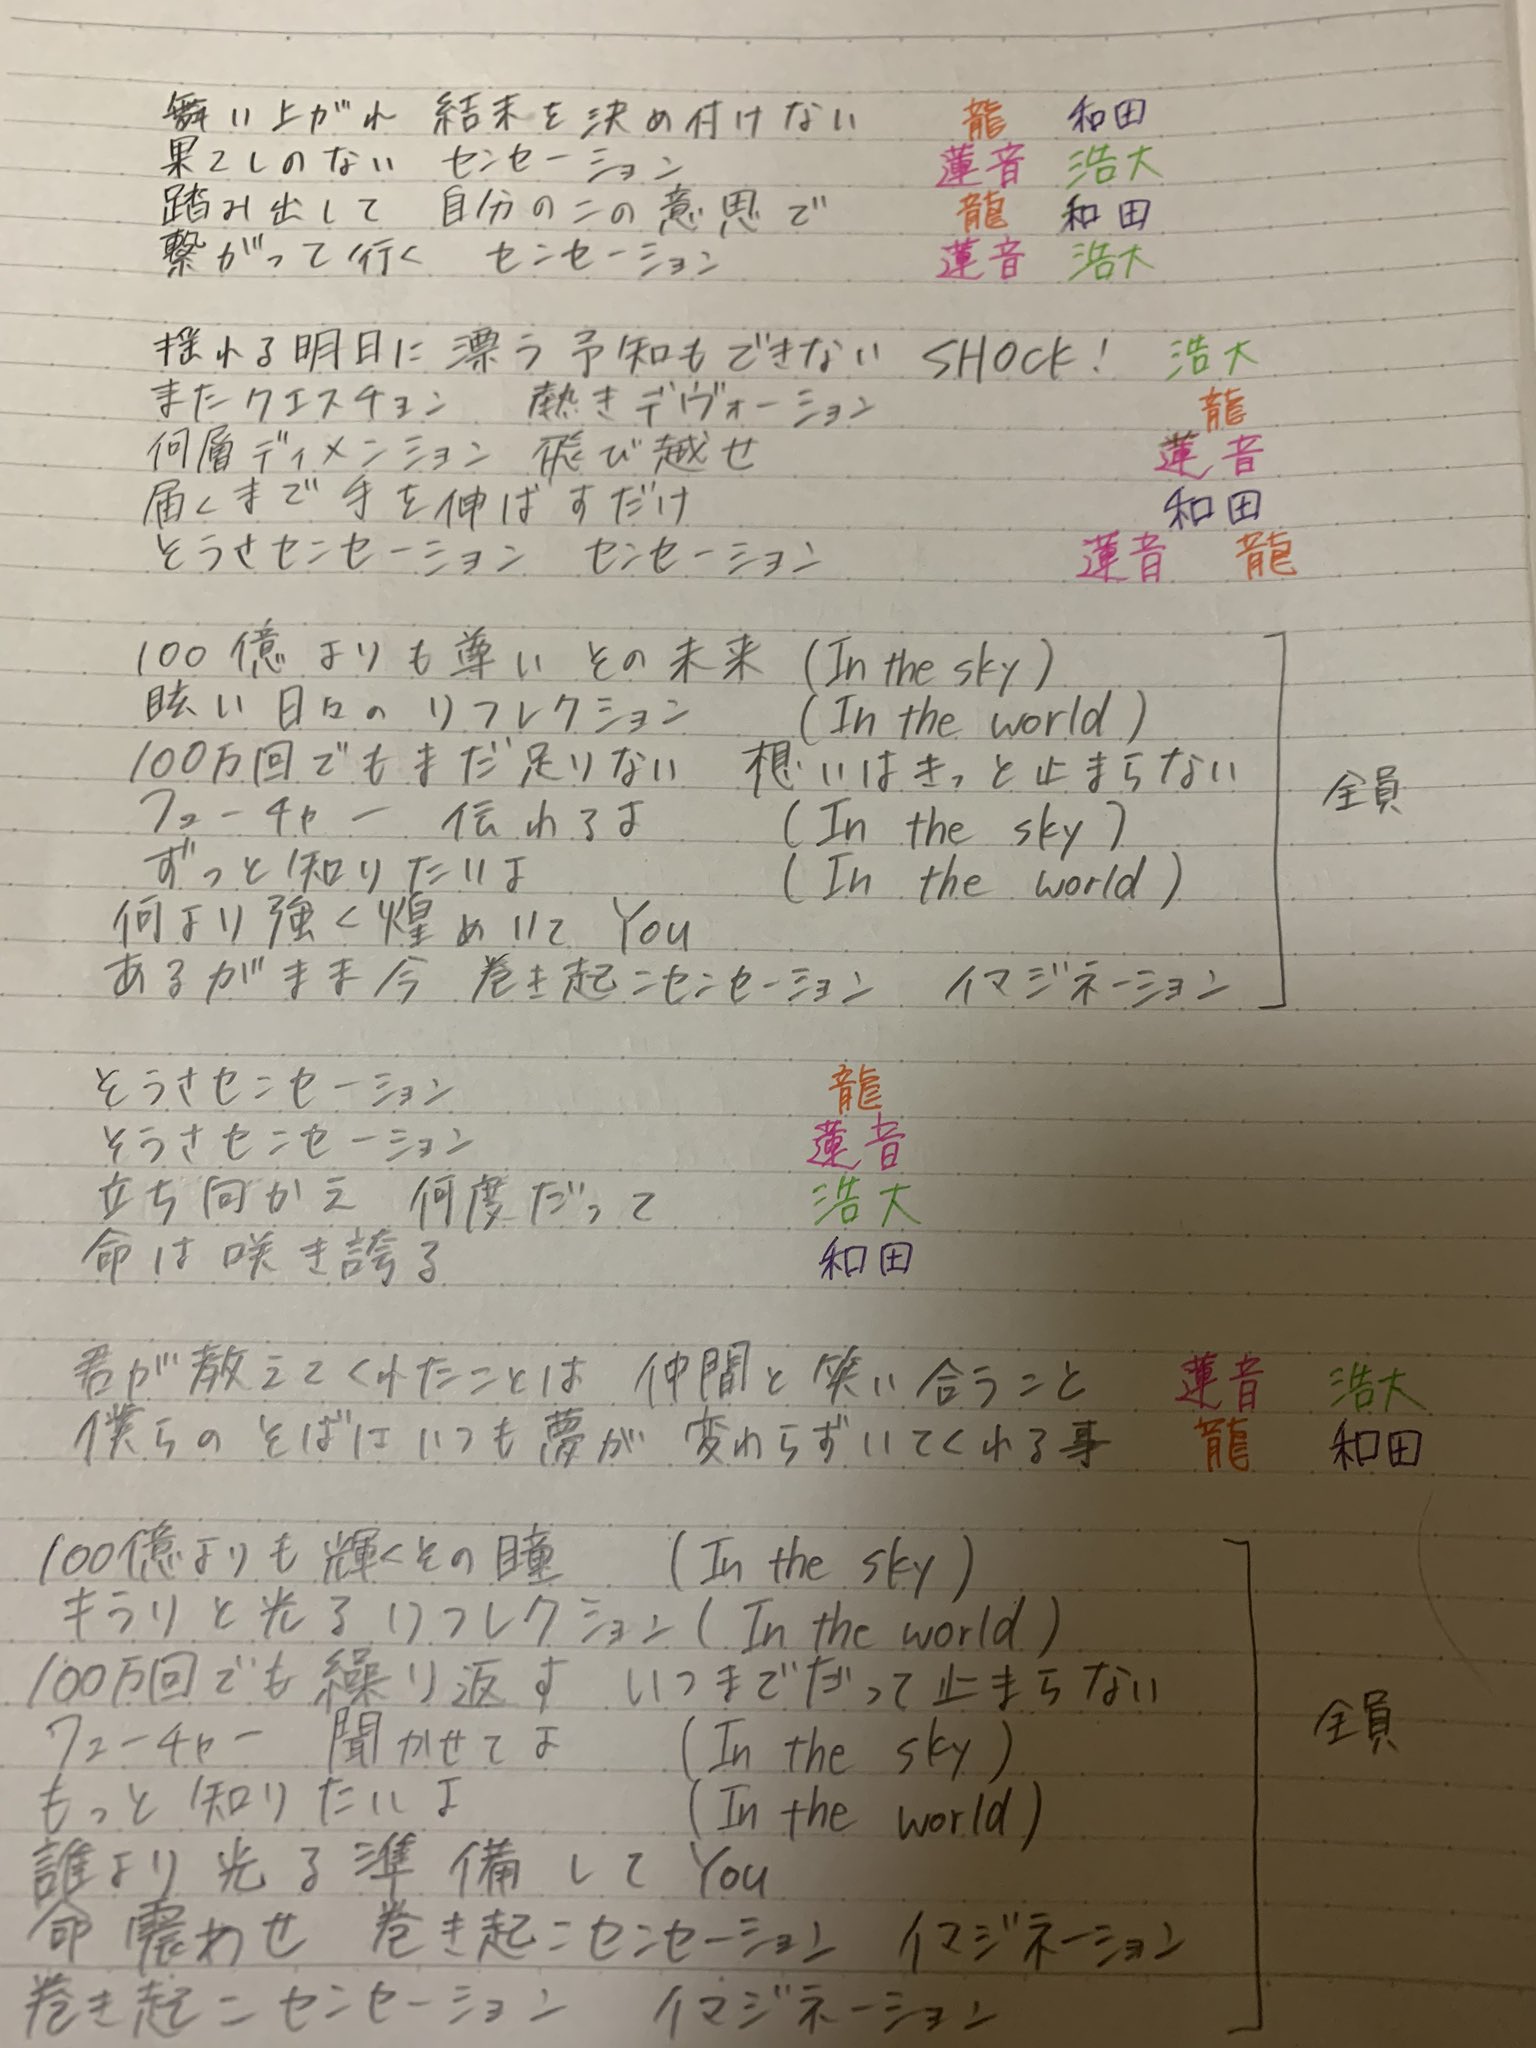 舞い上がれ 結末を決め付けない 龍 和田
果てしのない センセーション 蓮音 浩大
踏み出して 自分のこの意思で 龍 和田
繋がって行く センセーション 蓮音 浩大
揺れる明日に 漂う予知もできない SHOCK! 浩大
またクエスチョン 熱きデヴォーション 龍
何層ディメンション 飛び越せ 蓮音
届くまで手を伸ばすだけ 和田
そうさセンセーション センセーション 蓮音 龍
100億よりも尊い その未来 (In the sky)
眩い日々の リフレクション (In the world)
100万回でもまだ足りない 想いはきっと止まらない 全員
フューチャー 伝わるよ (In the sky)
ずっと知りたいよ (In the world)
何より強く煌めいて You
あるがまま今 巻き起こセンセーション イマジネーション
そうさセンセーション 龍
そうさセンセーション 蓮音
立ち向かえ 何度だって 浩大
命は咲き誇る 和田
君が教えてくれたことは 仲間と笑い合うこと 蓮音 浩大
僕らのそばはいつも夢が 変わらずいてくれる事 龍 和田
100億よりも輝くその瞳 (In the sky)
キラリと光るリフレクション (In the world)
100万回でも繰り返す いつまでだって止まらない 全員
フューチャー 聞かせてよ (In the sky)
もっと知りたいよ (In the world)
誰より光る準備して You
命震わせ 巻き起こセンセーション イマジネーション
巻き起こセンセーション イマジネーション